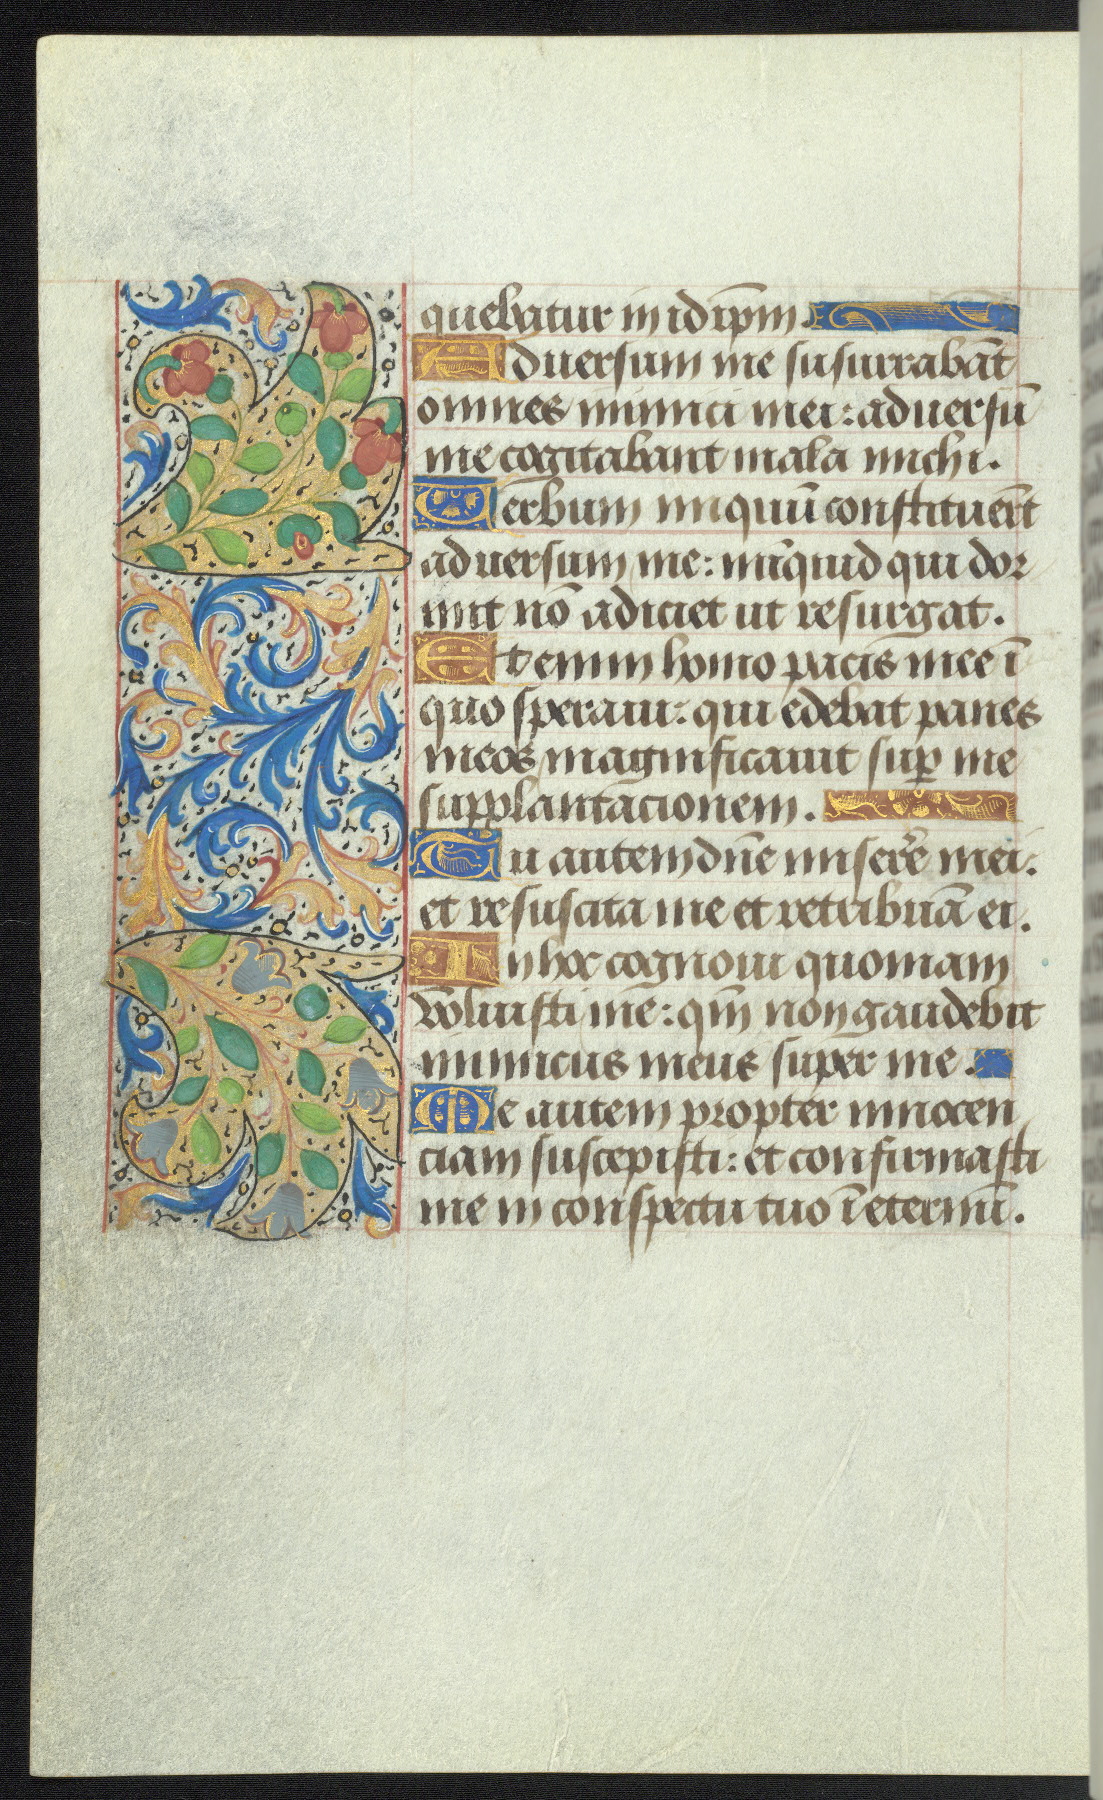 quebatur in id ip̄m.
Aduersum me susurrabāt
omnes inimici mei: aduersū
me cogitabant mala michi.
Uerbum iniquū constituer̄t
aduersum me: nūquid qui dor
mit nō adiciet ut resurgat.
Etenim homo pacis mee ī
quo speraui: qui edebat panes
meos magnificauit sup̄ me
supplantacionem.
Tu autem dn̄e miserēe mei:
et resuscita me et retribuā ei.
In hoc cognoui quoniam
voluisti me: qm̄ non gaudebit
inimicus meus super me.
Me autem propter innocen
ciam suscepisti: et confirmasti
me in conspectu tuo ī eternū.